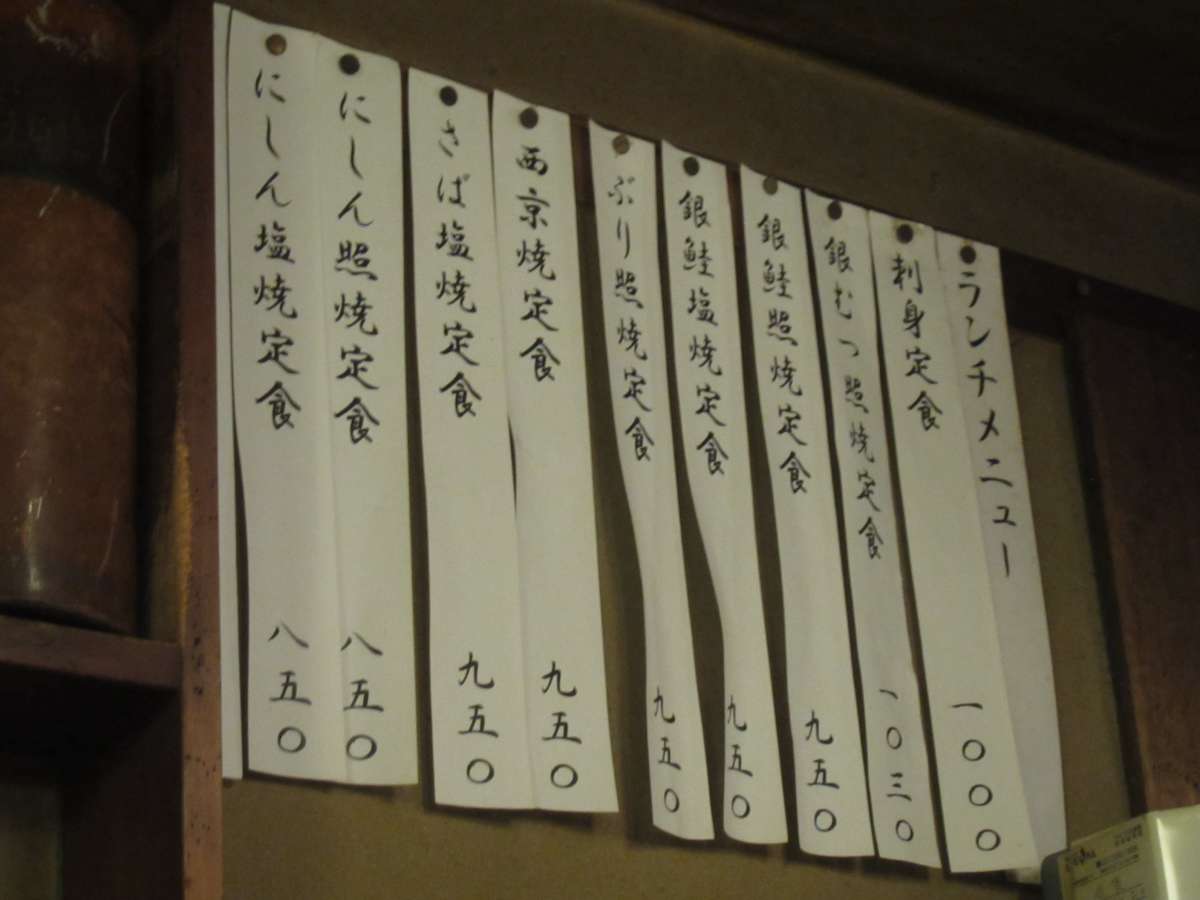 ランチメニュー
刺身定食 一〇〇〇
銀むつ照焼定食 一〇三〇
銀鮭照焼定食 九五〇
銀鮭塩焼定食 九五〇
ぶり照焼定食 九五〇
西京焼定食 九五〇
さば塩焼定食 九五〇
にしん照焼定食 八五〇
にしん塩焼定食 八五〇